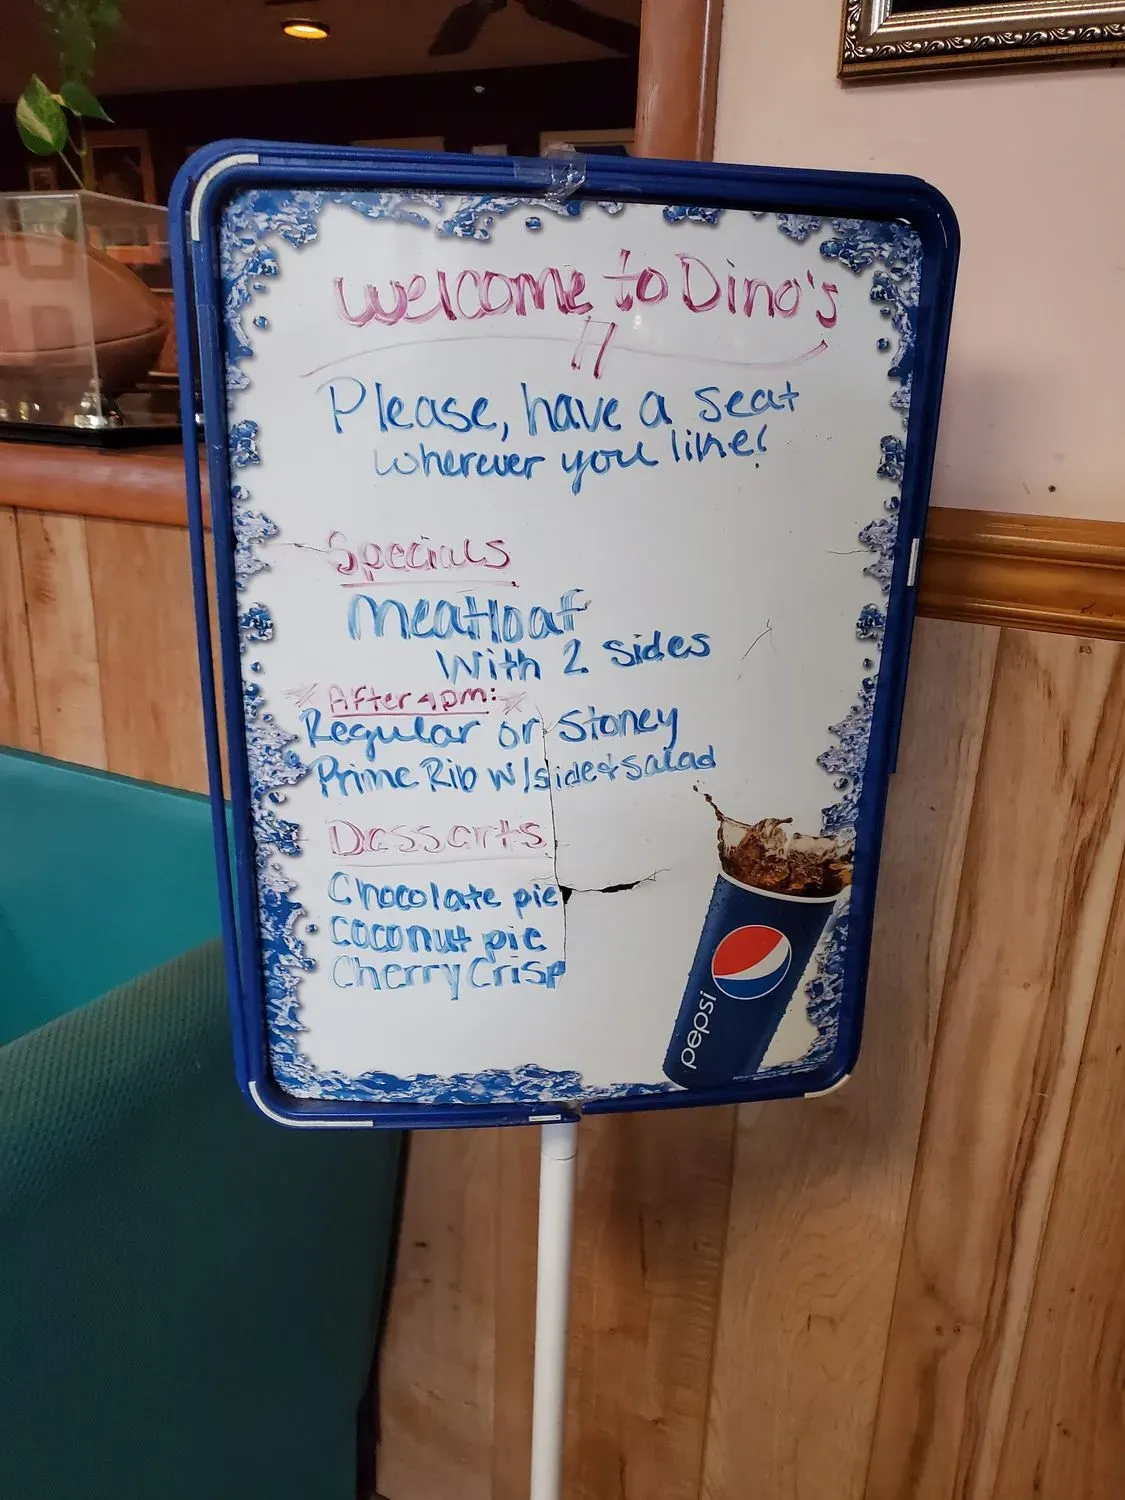 Welcome to Dino's
Please, have a seat
wherever you like!
Specials
Meatloaf
With 2 sides
*After 4pm:*
Regular or Stoney
Prime Rib w/side & salad
Desserts
Chocolate pie
Coconut pie
Cherry Crisp
pepsi